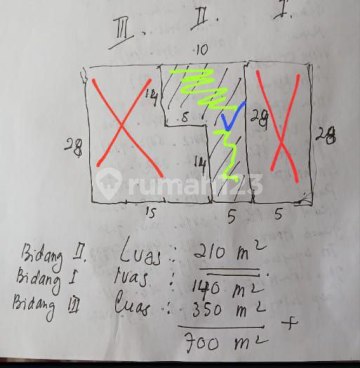 III. II. I.
10
14 28
28 5 28
14
15 5 5
rumah123
Bidang II. Luas : 210 m²
Bidang I luas : 140 m²
Bidang III Luas : 350 m² +
700 m²